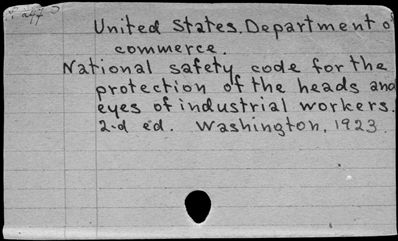 United States. Department of
commerce.
National safety code for the
protection of the heads and
eyes of industrial workers.
2-d ed. Washington, 1923.